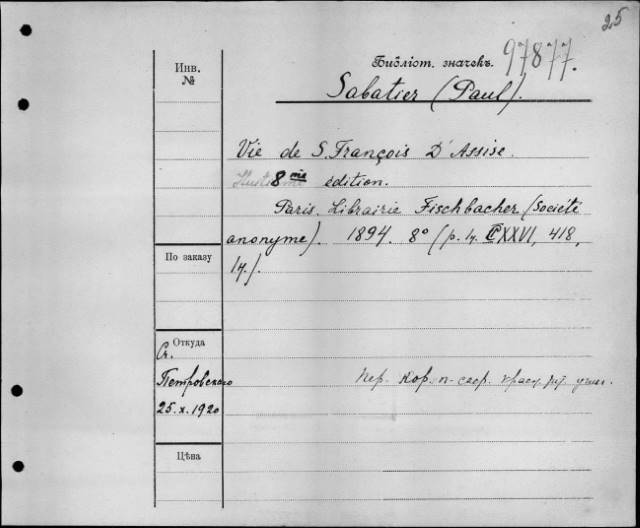 25
Инв.
№
Библіот. значекъ.
97877.
Sabatier (Paul).
Vie de S. François D'Assise.
8me édition.
Paris. Librairie Fischbacher (Société
anonyme). 1894. 8° (p. 4. CXXVI, 418,
14.).
По заказу
Откуда
Ст.
Петровского
25.x.1920
Пер. кор. п-
Цѣна